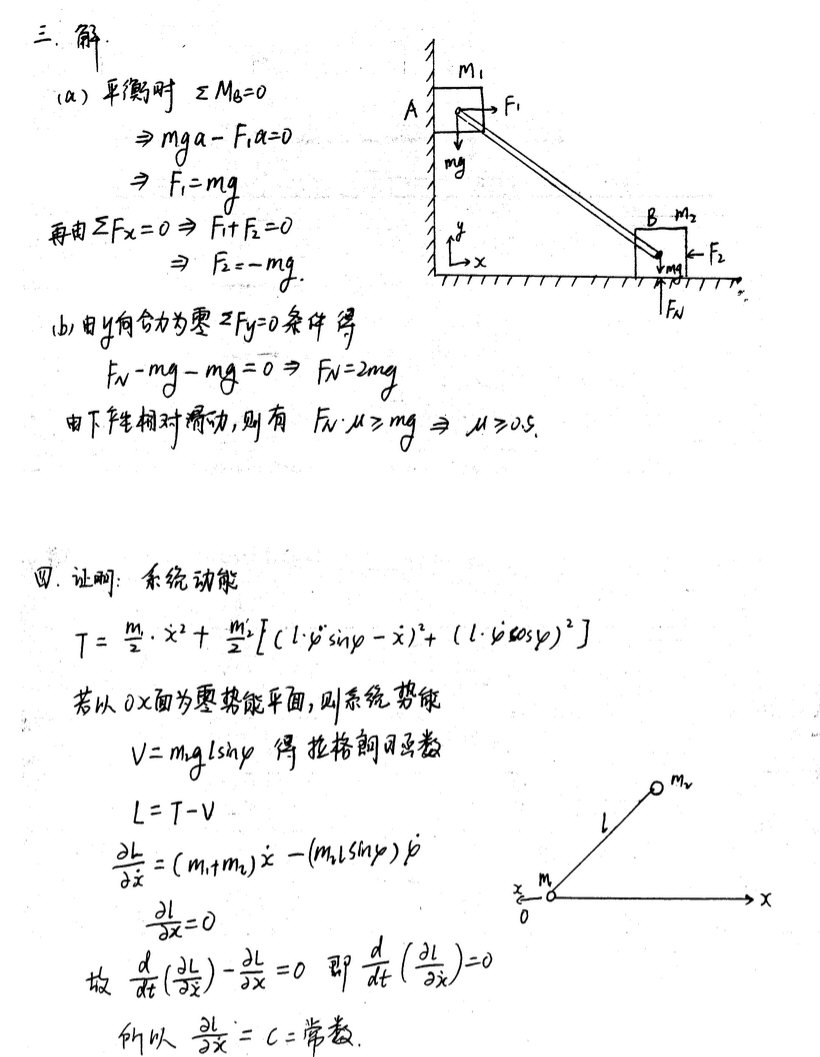 三. 解.
(a) 平衡时 ΣM_B=0
⇒ mga − F₁a=0
⇒ F₁=mg
再由 ΣFx=0 ⇒ F₁+F₂=0
⇒ F₂=−mg.
(b) 由y向合力为零 ΣFy=0 条件得
F_N−mg−mg=0 ⇒ F_N=2mg
由下产生相对滑动,则有 F_N·μ≥mg ⇒ μ≥0.5.
A
M₁
F₁
mg
y
x
B M₂
F₂
mg
F_N
四. 证明: 系统动能
T = m₁/2 · ẋ² + m₂/2 [(l·φ̇ sinφ − ẋ)² + (l·φ̇ cosφ)²]
若以 ox面为零势能平面,则系统势能
V=m₂glsinφ 得拉格朗日函数
L=T−V
∂L/∂ẋ = (m₁+m₂)ẋ −(m₂lsinφ)φ̇
∂L/∂x=0
故 d/dt(∂L/∂ẋ)−∂L/∂x=0 即 d/dt(∂L/∂ẋ)=0
所以 ∂L/∂ẋ = C=常数.
m₂
l
m₁
x
0
x